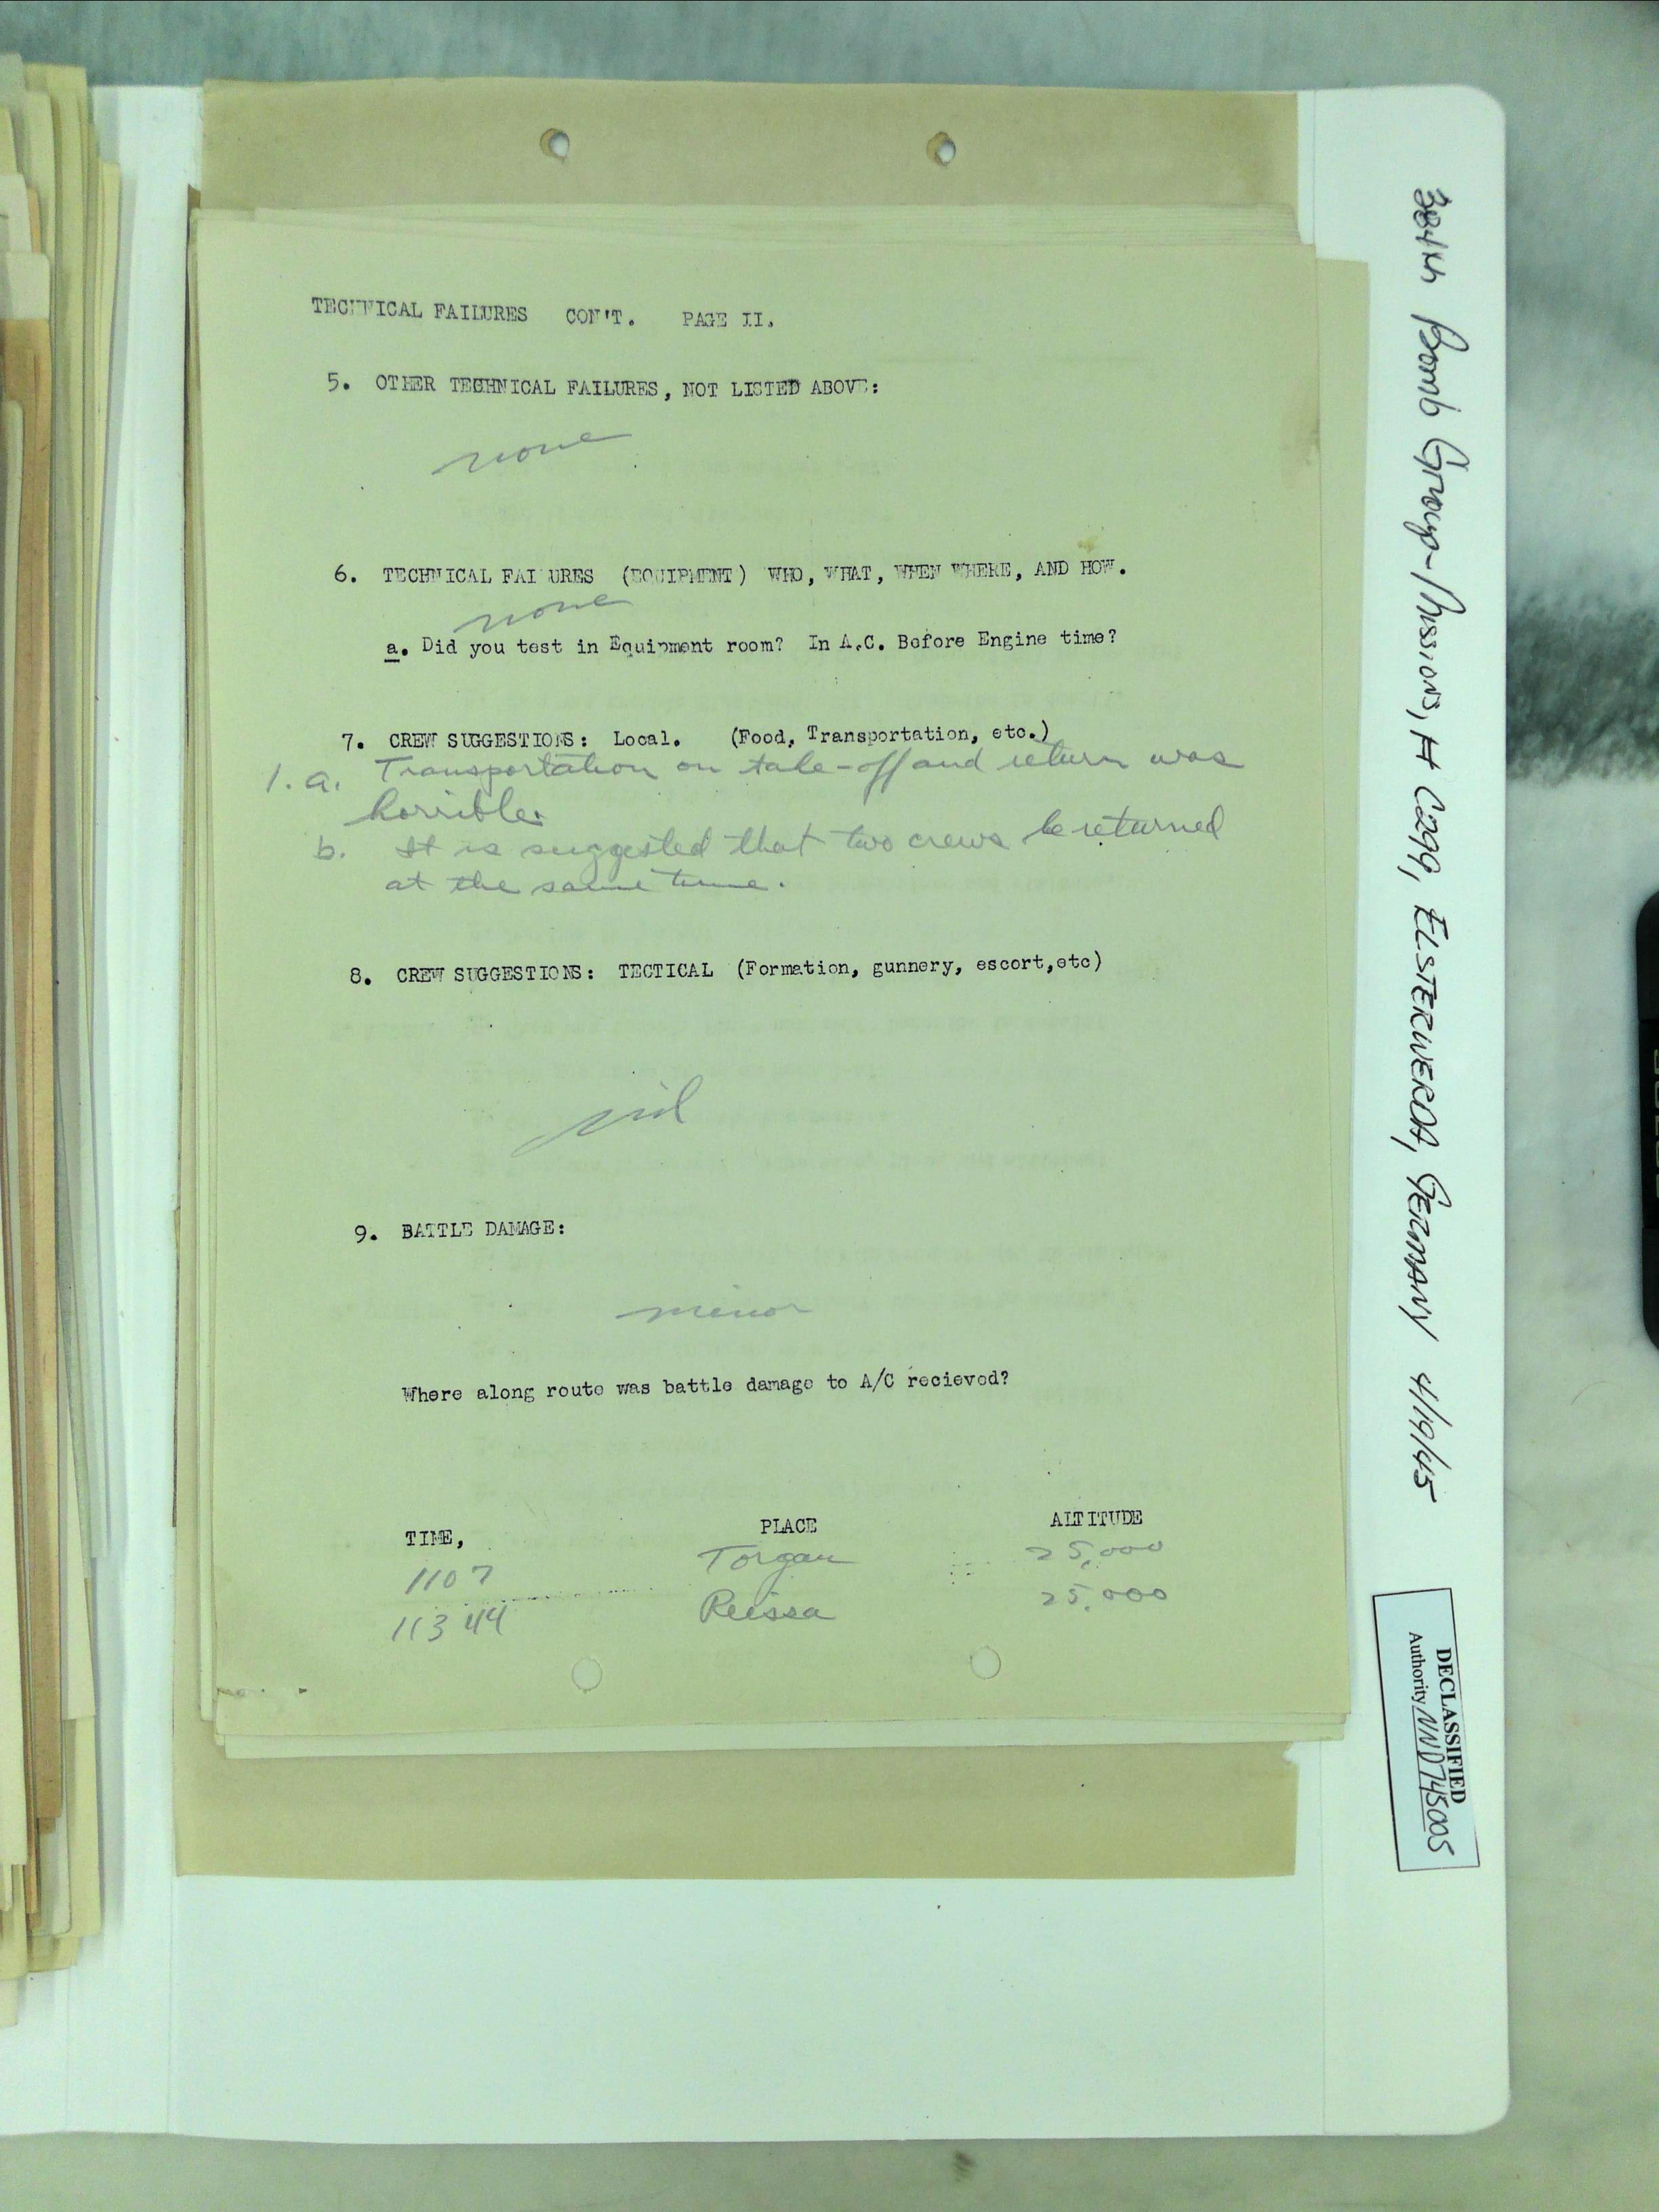 TECHNICAL FAILURES CON'T. PAGE II.
5. OTHER TECHNICAL FAILURES, NOT LISTED ABOVE:
none
6. TECHNICAL FAILURES (EQUIPMENT) WHO, WHAT, WHEN WHERE, AND HOW.
none
a. Did you test in Equipment room? In A.C. Before Engine time?
7. CREW SUGGESTIONS: Local. (Food, Transportation, etc.)
1. a. Transportation on take-off and return was
horrible.
b. It is suggested that two crews be returned
at the same time.
8. CREW SUGGESTIONS: TECTICAL (Formation, gunnery, escort, etc)
nil
9. BATTLE DAMAGE:
minor
Where along route was battle damage to A/C recieved?
TIME, PLACE ALTITUDE
1107 Torgau 25,000
113 44 Reissa 25,000
384th Bomb Group-Missions, # C299, ELSTERWERDA, GERMANY 4/19/45
DECLASSIFIED
Authority NND745005